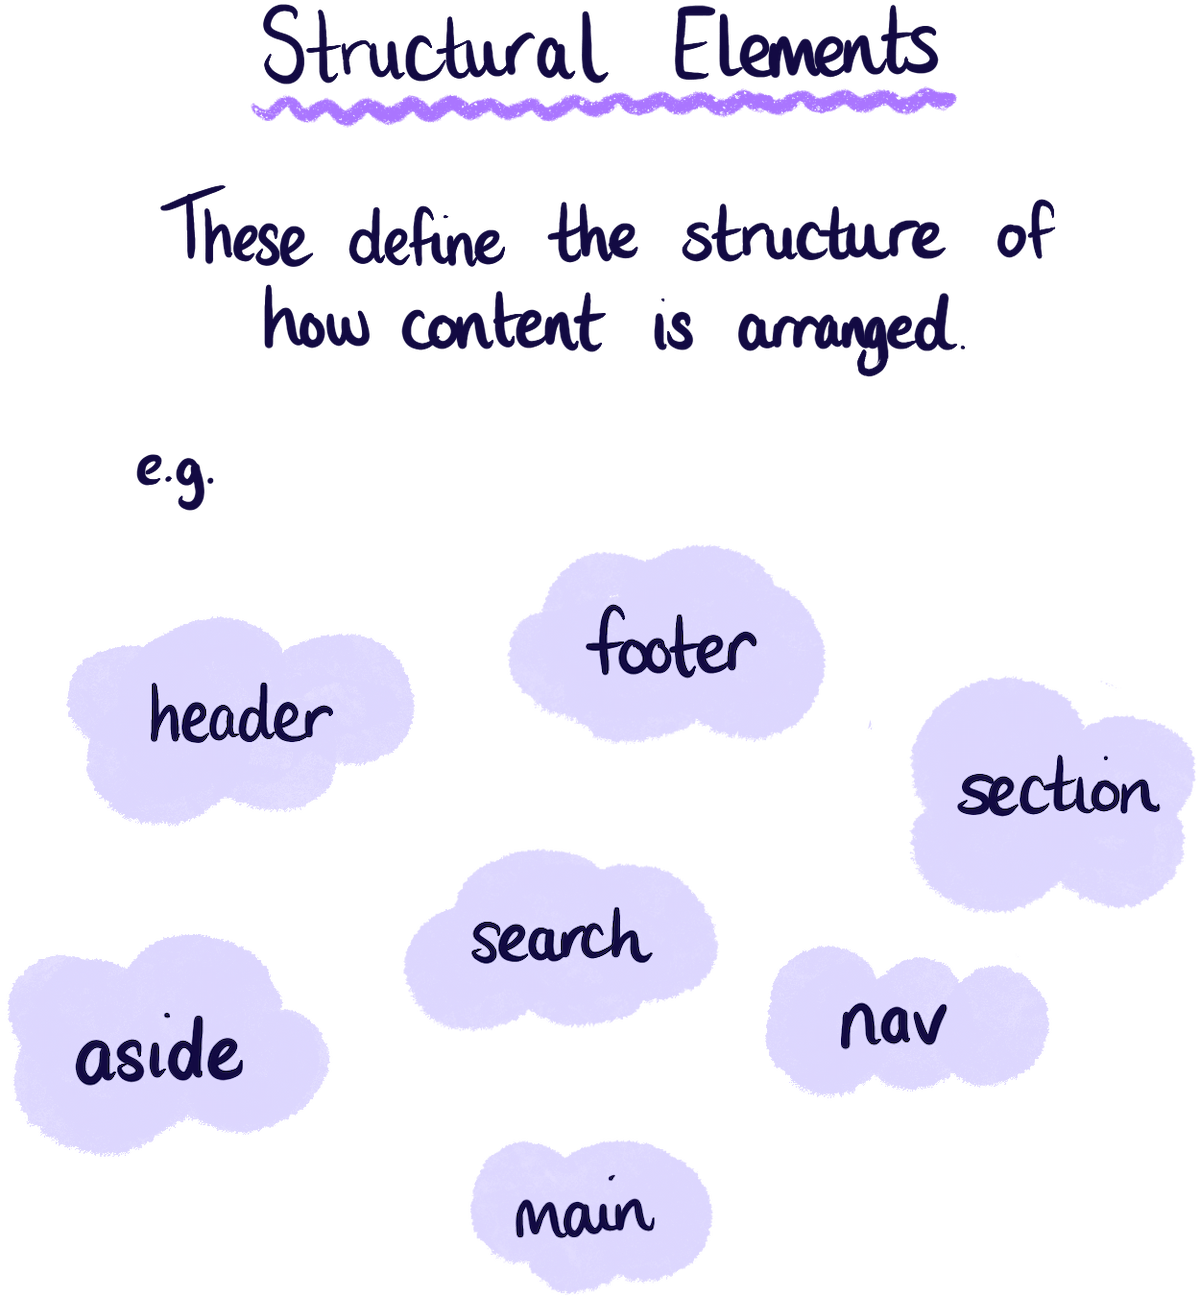 Structural Elements
These define the structure of
how content is arranged.
e.g.
header
footer
section
search
aside
nav
main